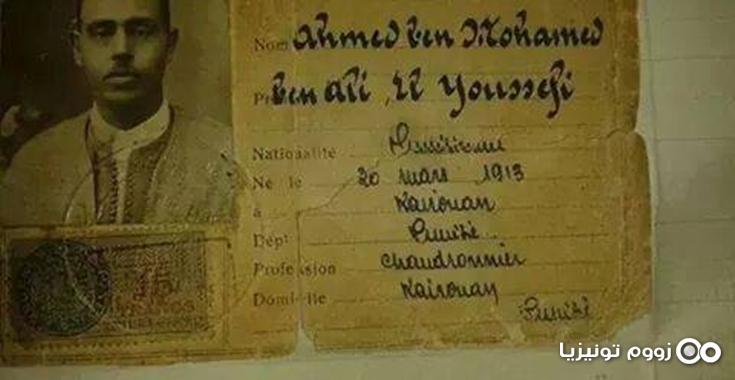 Nom Ahmed ben Mohamed
ben ali El Youssefi
Nationalité Tunisienne
Né le 20 mars 1913
à Kairouan
Dépt Tunisie
Profession chaudronnier
Domicile Kairouan
Tunisie
زووم تونيزيا